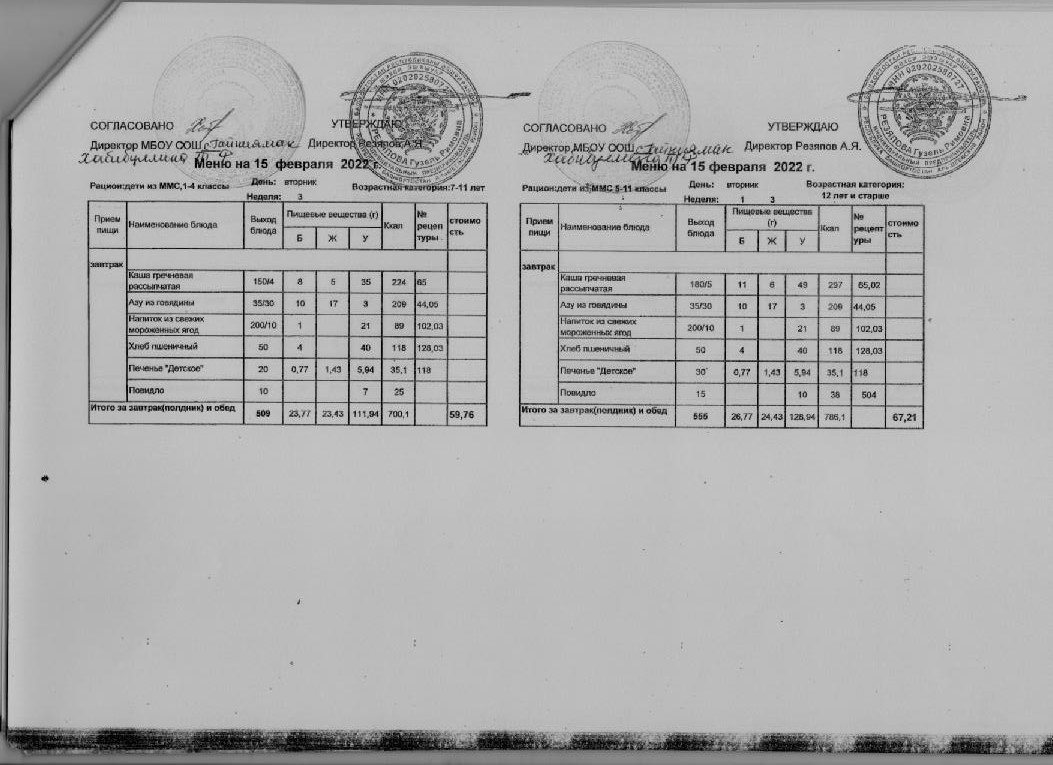 СОГЛАСОВАНО
УТВЕРЖДАЮ
Директор МБОУ СОШ с Таптыяман Директор Резяпов А.Я.
Хабибуллина
Меню на 15 февраля 2022 г.
Рацион:дети из ММС,1-4 классы
День: вторник
Возрастная категория:7-11 лет
Неделя: 3
Прием пищи Наименование блюда Выход блюда Пищевые вещества (г) Ккал № рецептуры стоимость
Б Ж У
завтрак
Каша гречневая рассыпчатая 150/4 8 5 35 224 65
Азу из говядины 35/30 10 17 3 209 44,05
Напиток из свежих мороженных ягод 200/10 1 21 89 102,03
Хлеб пшеничный 50 4 40 118 128,03
Печенье "Детское" 20 0,77 1,43 5,94 35,1 118
Повидло 10 7 25
Итого за завтрак(полдник) и обед 509 23,77 23,43 111,94 700,1 59,76
СОГЛАСОВАНО
УТВЕРЖДАЮ
Директор МБОУ СОШ Директор Резяпов А.Я.
Хабибуллина
Меню на 15 февраля 2022 г.
Рацион:дети из ММС 5-11 классы
День: вторник
Возрастная категория:
Неделя: 1 3
12 лет и старше
Прием пищи Наименование блюда Выход блюда Пищевые вещества (г) Ккал № рецептуры стоимость
Б Ж У
завтрак
Каша гречневая рассыпчатая 180/5 11 6 49 297 65,02
Азу из говядины 35/30 10 17 3 209 44,05
Напиток из свежих мороженных ягод 200/10 1 21 89 102,03
Хлеб пшеничный 50 4 40 118 128,03
Печенье "Детское" 30 0,77 1,43 5,94 35,1 118
Повидло 15 10 38 504
Итого за завтрак(полдник) и обед 555 26,77 24,43 128,94 786,1 67,21
РЕЗЯПОВА Гузель Римовна